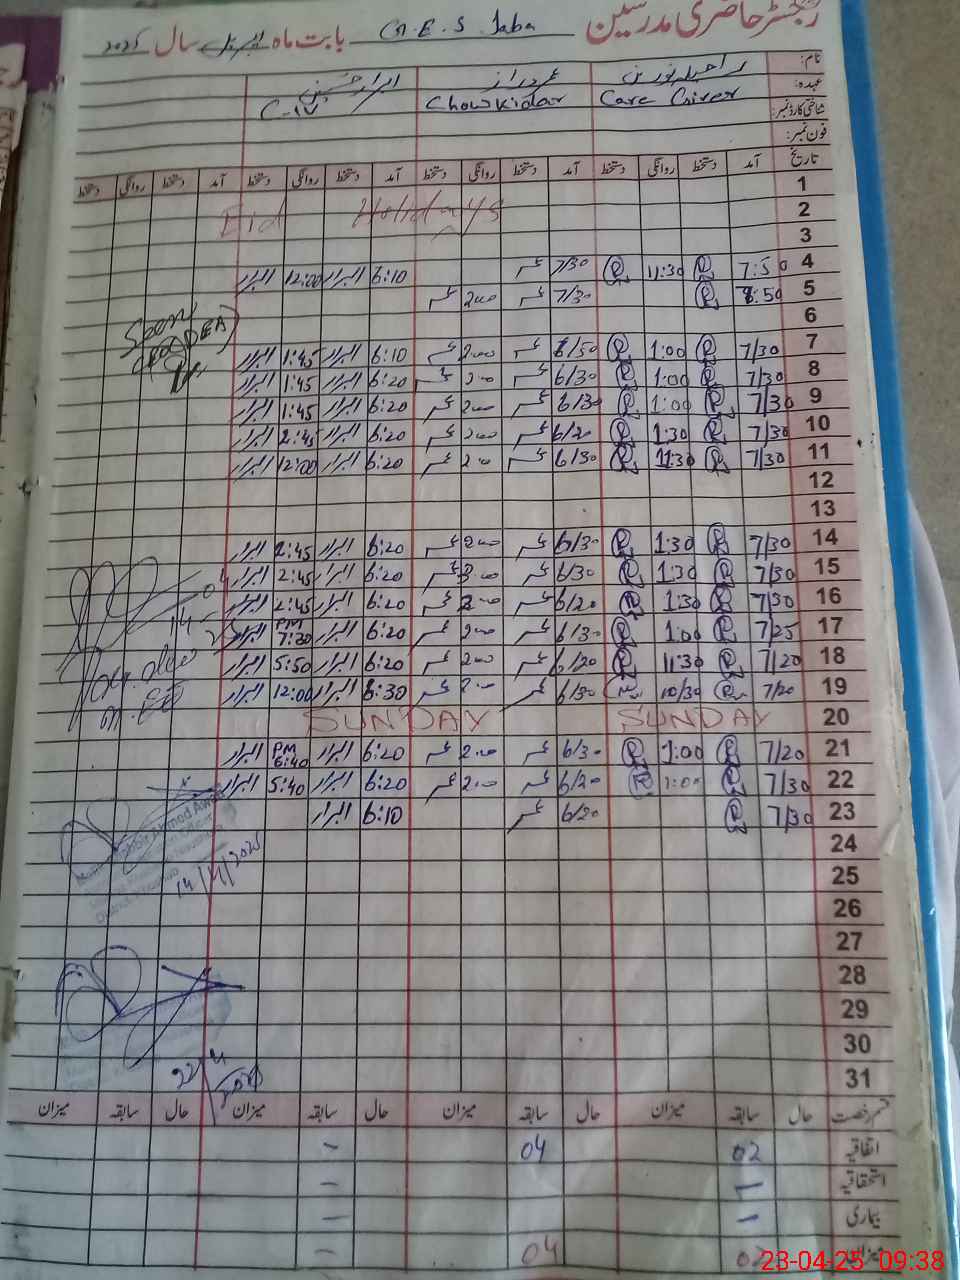 رجسٹر حاضری مدرسین G.E.S Jaba بابت ماہ اپریل سال 2025
نام:
عہدہ: Care Giver Chowkidar C-IV
شناختی کارڈ نمبر:
فون نمبر:
تاریخ آمد دستخط روانگی دستخط آمد دستخط روانگی دستخط آمد دستخط روانگی دستخط آمد دستخط روانگی دستخط
1
2 Eid Holidays
3
4 7:50 11:30 7/30 عمر 6:10 ابرار 12:00 ابرار
5 8:50 7/30 عمر 2:00 عمر
6
Seen
7 7/30 1:00 6/50 عمر 2:00 عمر 6:10 ابرار 1:45 ابرار
8 7/30 1:00 6/30 عمر 2:00 عمر 6:20 ابرار 1:45 ابرار
9 7/30 1:00 6/30 عمر 2:00 عمر 6:20 ابرار 1:45 ابرار
10 7/30 1:30 6/20 عمر 2:00 عمر 6:20 ابرار 2:45 ابرار
11 7/30 11:30 6/30 عمر 2:00 عمر 6:20 ابرار 12:00 ابرار
12
13
14 7/30 1:30 6/30 عمر 2:00 عمر 6:20 ابرار 2:45 ابرار
15 7/30 1:30 6/30 عمر 2:00 عمر 6:20 ابرار 2:45 ابرار
16 7/30 1:30 6/20 عمر 2:00 عمر 6:20 ابرار 2:45 ابرار
17 7/25 1:00 6/30 عمر 2:00 عمر 6:20 ابرار PM 7:30 ابرار
18 7/20 11:30 6/20 عمر 2:00 عمر 6:20 ابرار 5:50 ابرار
19 7/20 10/30 6/30 عمر 2:00 عمر 6:30 ابرار 12:00 ابرار
20 SUNDAY SUNDAY
21 7/20 1:00 6/30 عمر 2:00 عمر 6:20 ابرار PM 6:40 ابرار
22 7/30 1:00 6/20 عمر 2:00 عمر 6:20 ابرار 5:40 ابرار
23 7/30 6/20 عمر 6:10 ابرار
24
25
26
27
28
29
30
31
قسم رخصت حال سابقہ میزان حال سابقہ میزان حال سابقہ میزان حال سابقہ میزان
اتفاقیہ 02 04 –
استحقاقیہ – –
بیماری – –
میزان 04 –
23-04-25 09:38